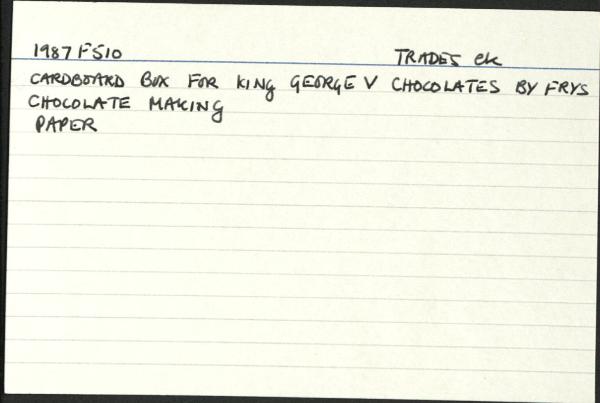 1987 F510 TRADES ck
CARDBOARD BOX FOR KING GEORGE V CHOCOLATES BY FRYS
CHOCOLATE MAKING
PAPER